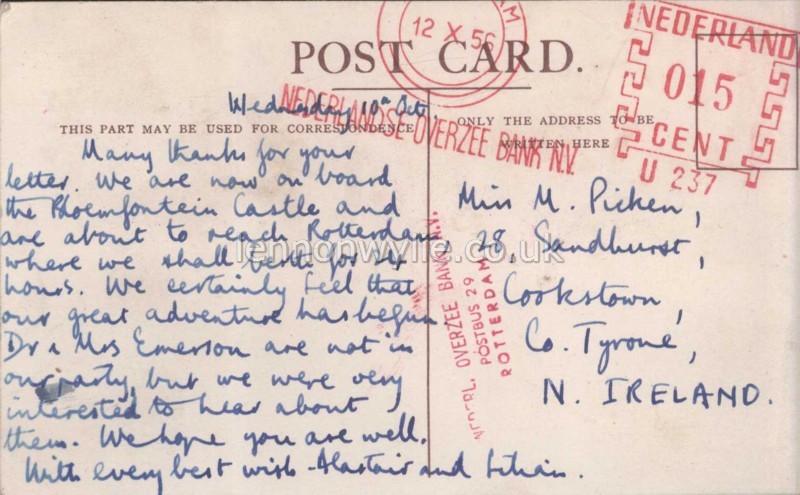 12 X 56
NEDERLAND
015
CENT
U 237
POST CARD.
NEDERLANDSE OVERZEE BANK N.V.
Wednesday 10th Oct
THIS PART MAY BE USED FOR CORRESPONDENCE
ONLY THE ADDRESS TO BE
WRITTEN HERE
Many thanks for your
letter. We are now on board
the Bloemfontein Castle and
are about to reach Rotterdam,
where we shall berth for 24
hours. We certainly feel that
our great adventure has begun.
Dr & Mrs Emerson are not in
our party, but we were very
interested to hear about
them. We hope you are well.
With every best wish - Alastair and Lilian.
Miss M. Picken,
28, Sandhurst,
Cookstown,
Co. Tyrone,
N. IRELAND.
OVERZEE BANK N.V.
POSTBUS 29
ROTTERDAM
lennonwylie.co.uk